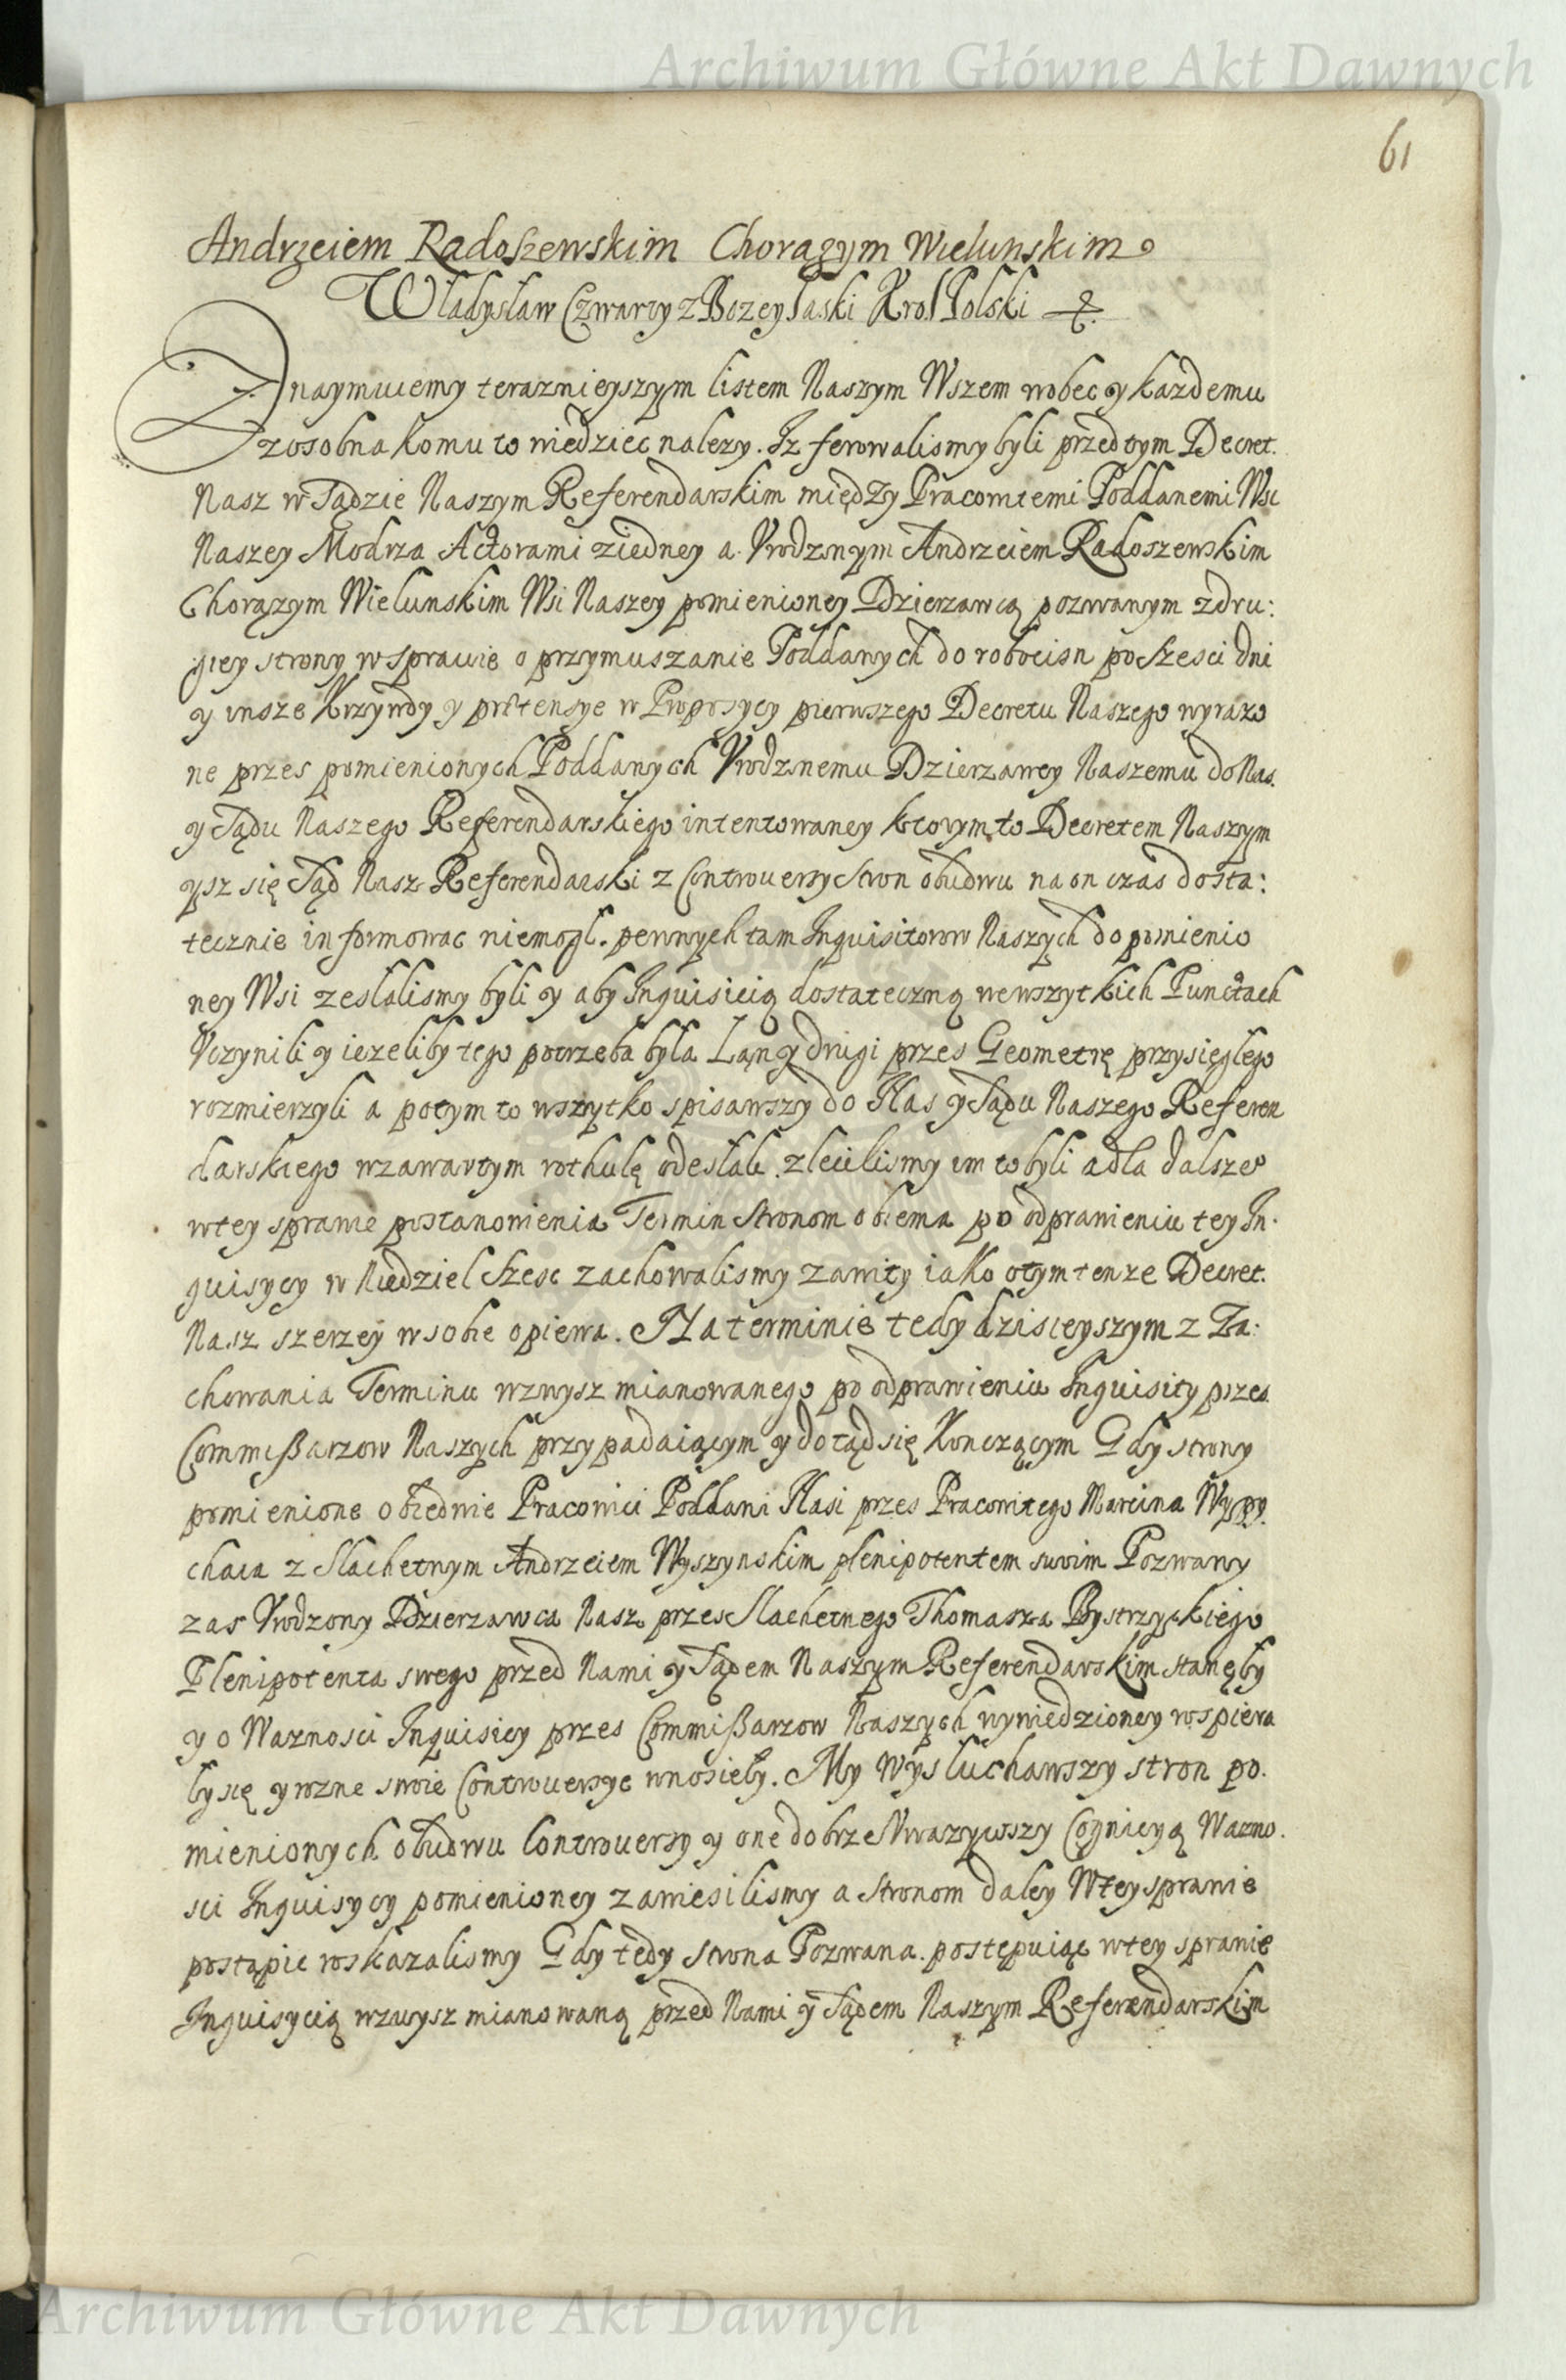 Archiwum Główne Akt Dawnych
61
Andrzeiem Radoszewskim Chorązym Wielunskim
Władysław Czwarty z Bozey łaski Krol Polski
Znaymuiemy teraznieyszym listem Naszym Wszem wobec y kazdemu
zosobna komu to wiedziec nalezy. Iz ferowalismy byli przed tym Decret
Nasz w Sądzie Naszym Referendarskim między Pracowitemi Poddanemi Wsi
Naszey Modrza Actorami ziedney a Vrodzonym Andrzeiem Radoszewskim
Chorązym Wielunskim Wsi Naszey pomienioney Dzierzawcą pozwanym zdru:
giey strony w sprawie o przymuszanie Poddanych do robocisn po szesci dni
y insze Krzywdy y prætensye w Propozycy pierwszego Decretu Naszego wyrazo
ne przes pomienionych Poddanych Vrodzonemu Dzierzawcy Naszemu do Nas
y Sądu Naszego Referendarskiego intentowaney ktorym to Decretem Naszym
ysz się Sąd Nasz Referendarski z Controuersy Stron obudwu na on czas dosta:
tecznie informowac niemogł. pewnych tam Inquisitorow Naszych do pomienio
ney Wsi zesłalismy byli y aby Inquisicią dostateczną wewszytkich Punctach
Vczynili y iezeliby tego potrzeba była Łan y drugi przes Geometrę przysięgłego
rozmierzyli a potym to wszytko spisawszy do Nas y Sądu Naszego Referen
darskiego wzawartym rothulę odesłali. zlecilismy im to byli a dla dalszeo
wtey sprawie postanowienia Termin Stronom obiema po odprawieniu tey In
quisycy w Niedziel szesc zachowalismy zawity iako o tym tenze Decret
Nasz szerzey w sobie opiewa. Na terminie tedy dzisieyszym z Za:
chowania Terminu wzwysz mianowanego po odprawieniu Inquisity przes
Commissarzow Naszych przypadaiącym y dotąd się Konczącym Gdy strony
pomienione obiedwie Pracowici Poddani Nasi przes Pracowitego Marcina Wypy
chaca z Slachetnym Andrzeiem Wyszynskim plenipotentem swoim Pozwany
zas Vrodzony Dzierzawca Nasz przes Slachetnego Thomasza Bystrzyckiego
Plenipotenta swego przed Nami y Sądem Naszym Referendarskim stanęły
y o Waznosci Inquisicy przes Commissarzow Naszych wywiedzioney wspiera
ły się y rozne swoie Controuersye wnosieły. My Wysłuchawszy stron po
mienionych obudwu Controuersy y one dobrze Vwazywszy Cognicyą Wazno
sci Inquisycy pomienioney zawiesilismy a Stronom daley Wtey sprawie
postąpic roskazalismy Gdy tedy strona Pozwana postępuiąc wtey sprawie
Inquisycią wzwysz mianowaną przed Nami y Sądem Naszym Referendarskim
Archiwum Główne Akt Dawnych